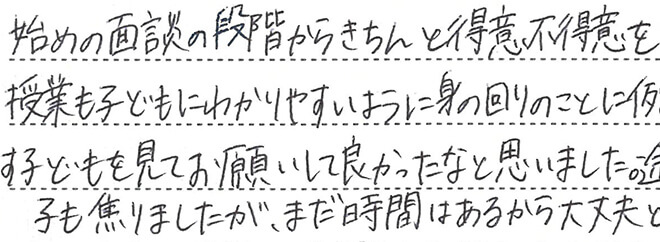 始めの面談の段階からきちんと得意、不得意を
授業も子どもにわかりやすいように身の回りのことに例
す子どもを見てお願いして良かったなと思いました。途
子も焦りましたが、まだ時間はあるから大丈夫と